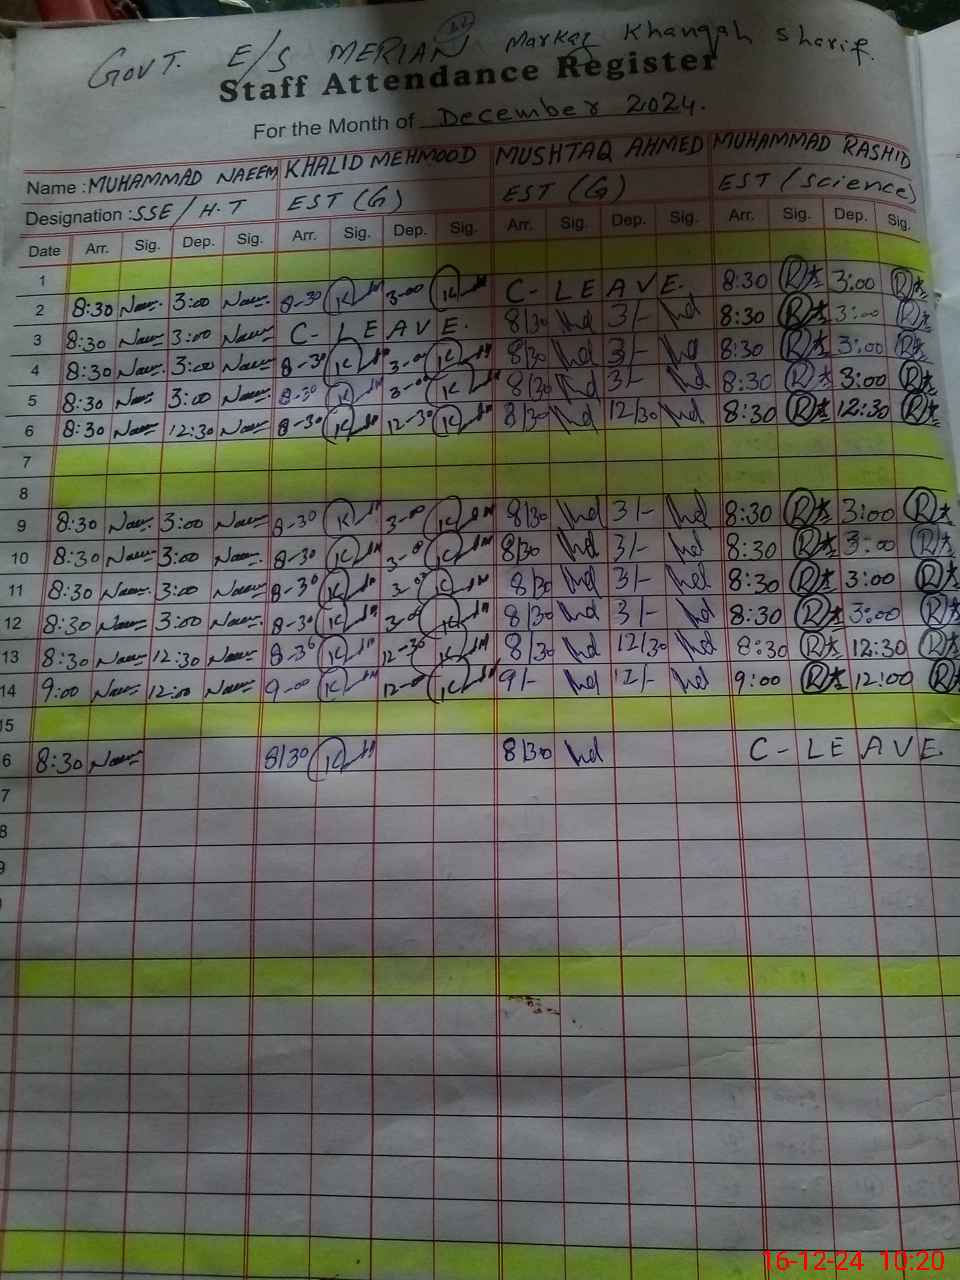 GOVT. E/S MERIAN Markaz Khanqah Sharif.
Staff Attendance Register
For the Month of December 2024.
Name : MUHAMMAD NAEEM KHALID MEHMOOD MUSHTAQ AHMED MUHAMMAD RASHID
Designation : SSE/H.T EST (G) EST (G) EST (Science)
Date Arr. Sig. Dep. Sig. Arr. Sig. Dep. Sig. Arr. Sig. Dep. Sig. Arr. Sig. Dep. Sig.
1
2 8:30 3:00 8-30 3-00 C-LEAVE. 8:30 3:00
3 8:30 3:00 C-LEAVE. 8/30 3/- 8:30 3:00
4 8:30 3:00 8-30 3-00 8/30 3/- 8:30 3:00
5 8:30 3:00 8-30 3-00 8/30 3/- 8:30 3:00
6 8:30 12:30 8-30 12-30 8/30 12/30 8:30 12:30
7
8
9 8:30 3:00 8-30 3-00 8/30 3/- 8:30 3:00
10 8:30 3:00 8-30 3-00 8/30 3/- 8:30 3:00
11 8:30 3:00 8-30 3-00 8/30 3/- 8:30 3:00
12 8:30 3:00 8-30 3-00 8/30 3/- 8:30 3:00
13 8:30 12:30 8-30 12-30 8/30 12/30 8:30 12:30
14 9:00 12:00 9-00 12-00 9/- 12/- 9:00 12:00
15
6 8:30 8/30 8/30 C-LEAVE.
7
8
9
16-12-24 10:20